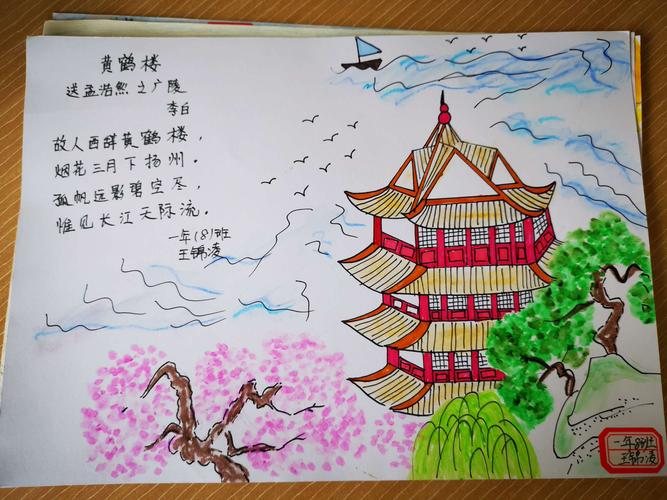 黄鹤楼
送孟浩然之广陵
李白
故人西辞黄鹤楼，
烟花三月下扬州。
孤帆远影碧空尽，
惟见长江天际流。
一年(8)班
王锦凌
一年8班
王锦凌